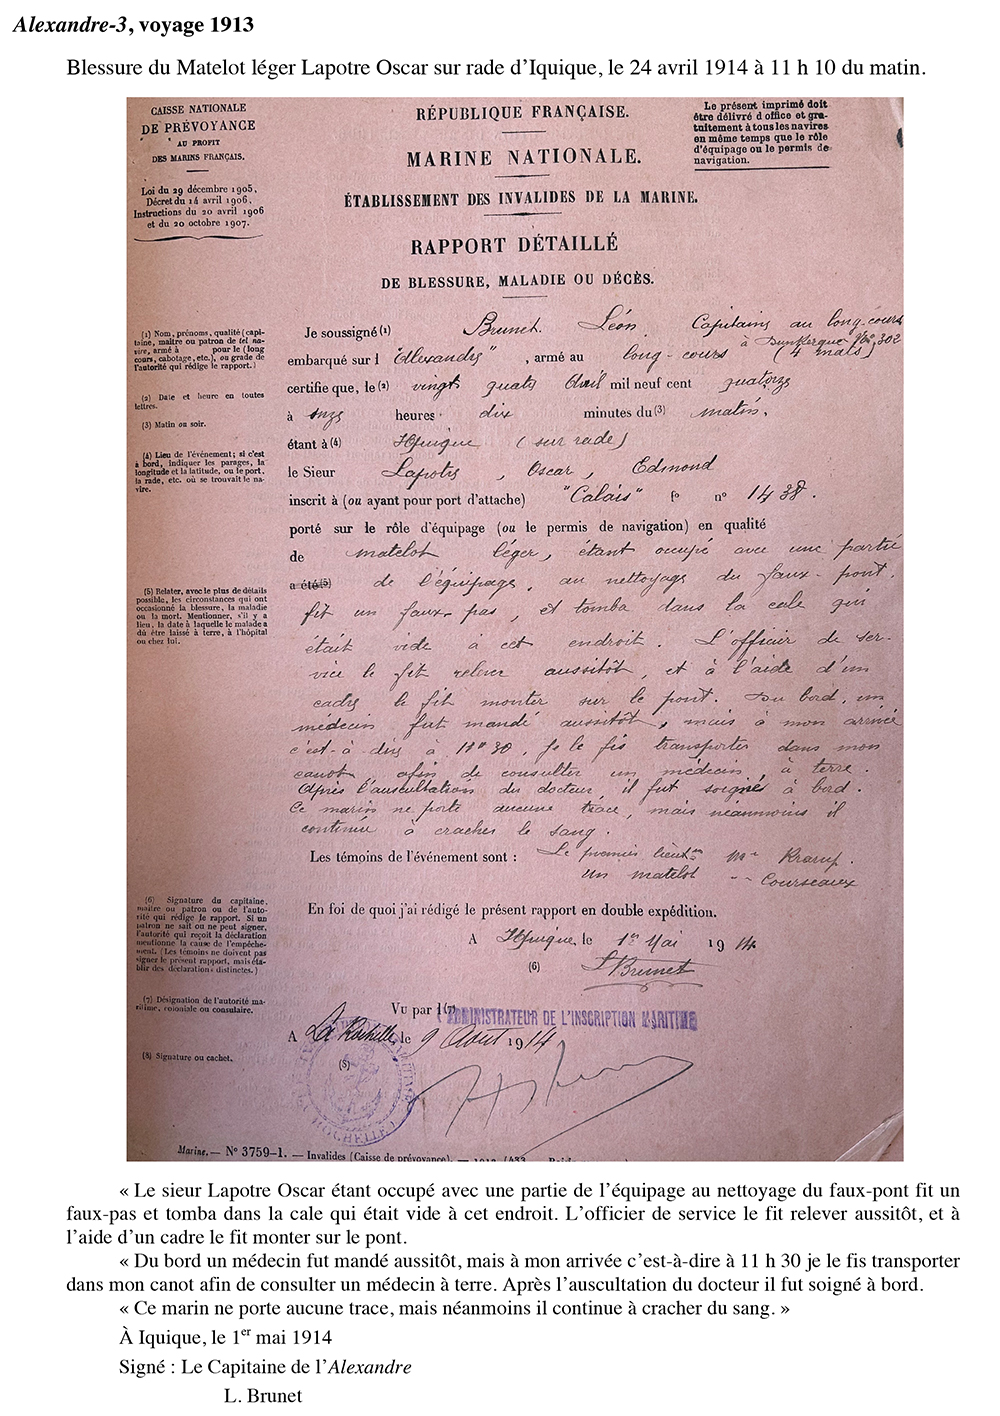 Alexandre-3, voyage 1913
Blessure du Matelot léger Lapotre Oscar sur rade d’Iquique, le 24 avril 1914 à 11 h 10 du matin.
CAISSE NATIONALE
DE PRÉVOYANCE
AU PROFIT
DES MARINS FRANÇAIS.
Loi du 29 décembre 1905,
Décret du 14 avril 1906,
Instructions du 20 avril 1906
et du 20 octobre 1907.
RÉPUBLIQUE FRANÇAISE.
MARINE NATIONALE.
ÉTABLISSEMENT DES INVALIDES DE LA MARINE.
RAPPORT DÉTAILLÉ
DE BLESSURE, MALADIE OU DÉCÈS.
Le présent imprimé doit
être délivré d'office et gra-
tuitement à tous les navires
en même temps que le rôle
d'équipage ou le permis de
navigation.
(1) Nom, prénoms, qualité (capi-
taine, maître ou patron de tel na-
vire, armé à pour le (long
cours, cabotage, etc.), ou grade de
l'autorité qui rédige le rapport.)
(2) Date et heure en toutes
lettres.
(3) Matin ou soir.
(4) Lieu de l'événement; si c'est
à bord, indiquer les parages, la
longitude et la latitude, ou le port,
la rade, etc. où se trouvait le na-
vire.
(5) Relater, avec le plus de détails
possible, les circonstances qui ont
occasionné la blessure, la maladie
ou la mort. Mentionner, s'il y a
lieu, la date à laquelle le malade a
dû être laissé à terre, à l'hôpital
ou chez lui.
(6) Signature du capitaine,
maître ou patron ou de l'auto-
rité qui rédige le rapport. Si un
patron ne sait ou ne peut signer,
l'autorité qui reçoit la déclaration
mentionne la cause de l'empêche-
ment. (Les témoins ne doivent pas
signer le présent rapport, mais éta-
blir des déclarations distinctes.)
(7) Désignation de l'autorité ma-
ritime, coloniale ou consulaire.
(8) Signature ou cachet.
Je soussigné (1) Brunet Léon, Capitaine au long-cours
à Dunkerque No 302
embarqué sur l "Alexandre", armé au long-cours (4 mats)
certifie que, le (2) vingt quatre Avril mil neuf cent quatorze
à onze heures dix minutes du (3) matin,
étant à (4) Iquique (sur rade)
le Sieur Lapotre, Oscar, Edmond
inscrit à (ou ayant pour port d'attache) "Calais" fo n° 1438.
porté sur le rôle d'équipage (ou le permis de navigation) en qualité
de matelot léger, étant occupé avec une partie
a été (5) de l'équipage, au nettoyage du faux-pont.
fit un faux-pas, et tomba dans la cale qui
était vide à cet endroit. L'officier de ser-
vice le fit relever aussitôt, et à l'aide d'un
cadre le fit monter sur le pont. Du bord, un
médecin fut mandé aussitôt, mais à mon arrivée
c'est-à-dire à 11h 30, je le fis transporter dans mon
canot, afin de consulter un médecin à terre.
Après l'auscultation du docteur, il fut soigné à bord.
Ce marin ne porte aucune trace, mais néanmoins il
continue à cracher le sang.
Les témoins de l'événement sont : Le premier lieut. Mr Kramp.
un matelot -- Courseaux
En foi de quoi j'ai rédigé le présent rapport en double expédition.
A Iquique, le 1er Mai 1914
(6) L Brunet
Vu par l (7) ADMINISTRATEUR DE L'INSCRIPTION MARITIME
A La Rochelle, le 9 Août 1914
(8)
Marine. — N° 3759-1. — Invalides (Caisse de prévoyance).
« Le sieur Lapotre Oscar étant occupé avec une partie de l’équipage au nettoyage du faux-pont fit un
faux-pas et tomba dans la cale qui était vide à cet endroit. L’officier de service le fit relever aussitôt, et à
l’aide d’un cadre le fit monter sur le pont.
« Du bord un médecin fut mandé aussitôt, mais à mon arrivée c’est-à-dire à 11 h 30 je le fis transporter
dans mon canot afin de consulter un médecin à terre. Après l’auscultation du docteur il fut soigné à bord.
« Ce marin ne porte aucune trace, mais néanmoins il continue à cracher du sang. »
À Iquique, le 1er mai 1914
Signé : Le Capitaine de l’Alexandre
L. Brunet